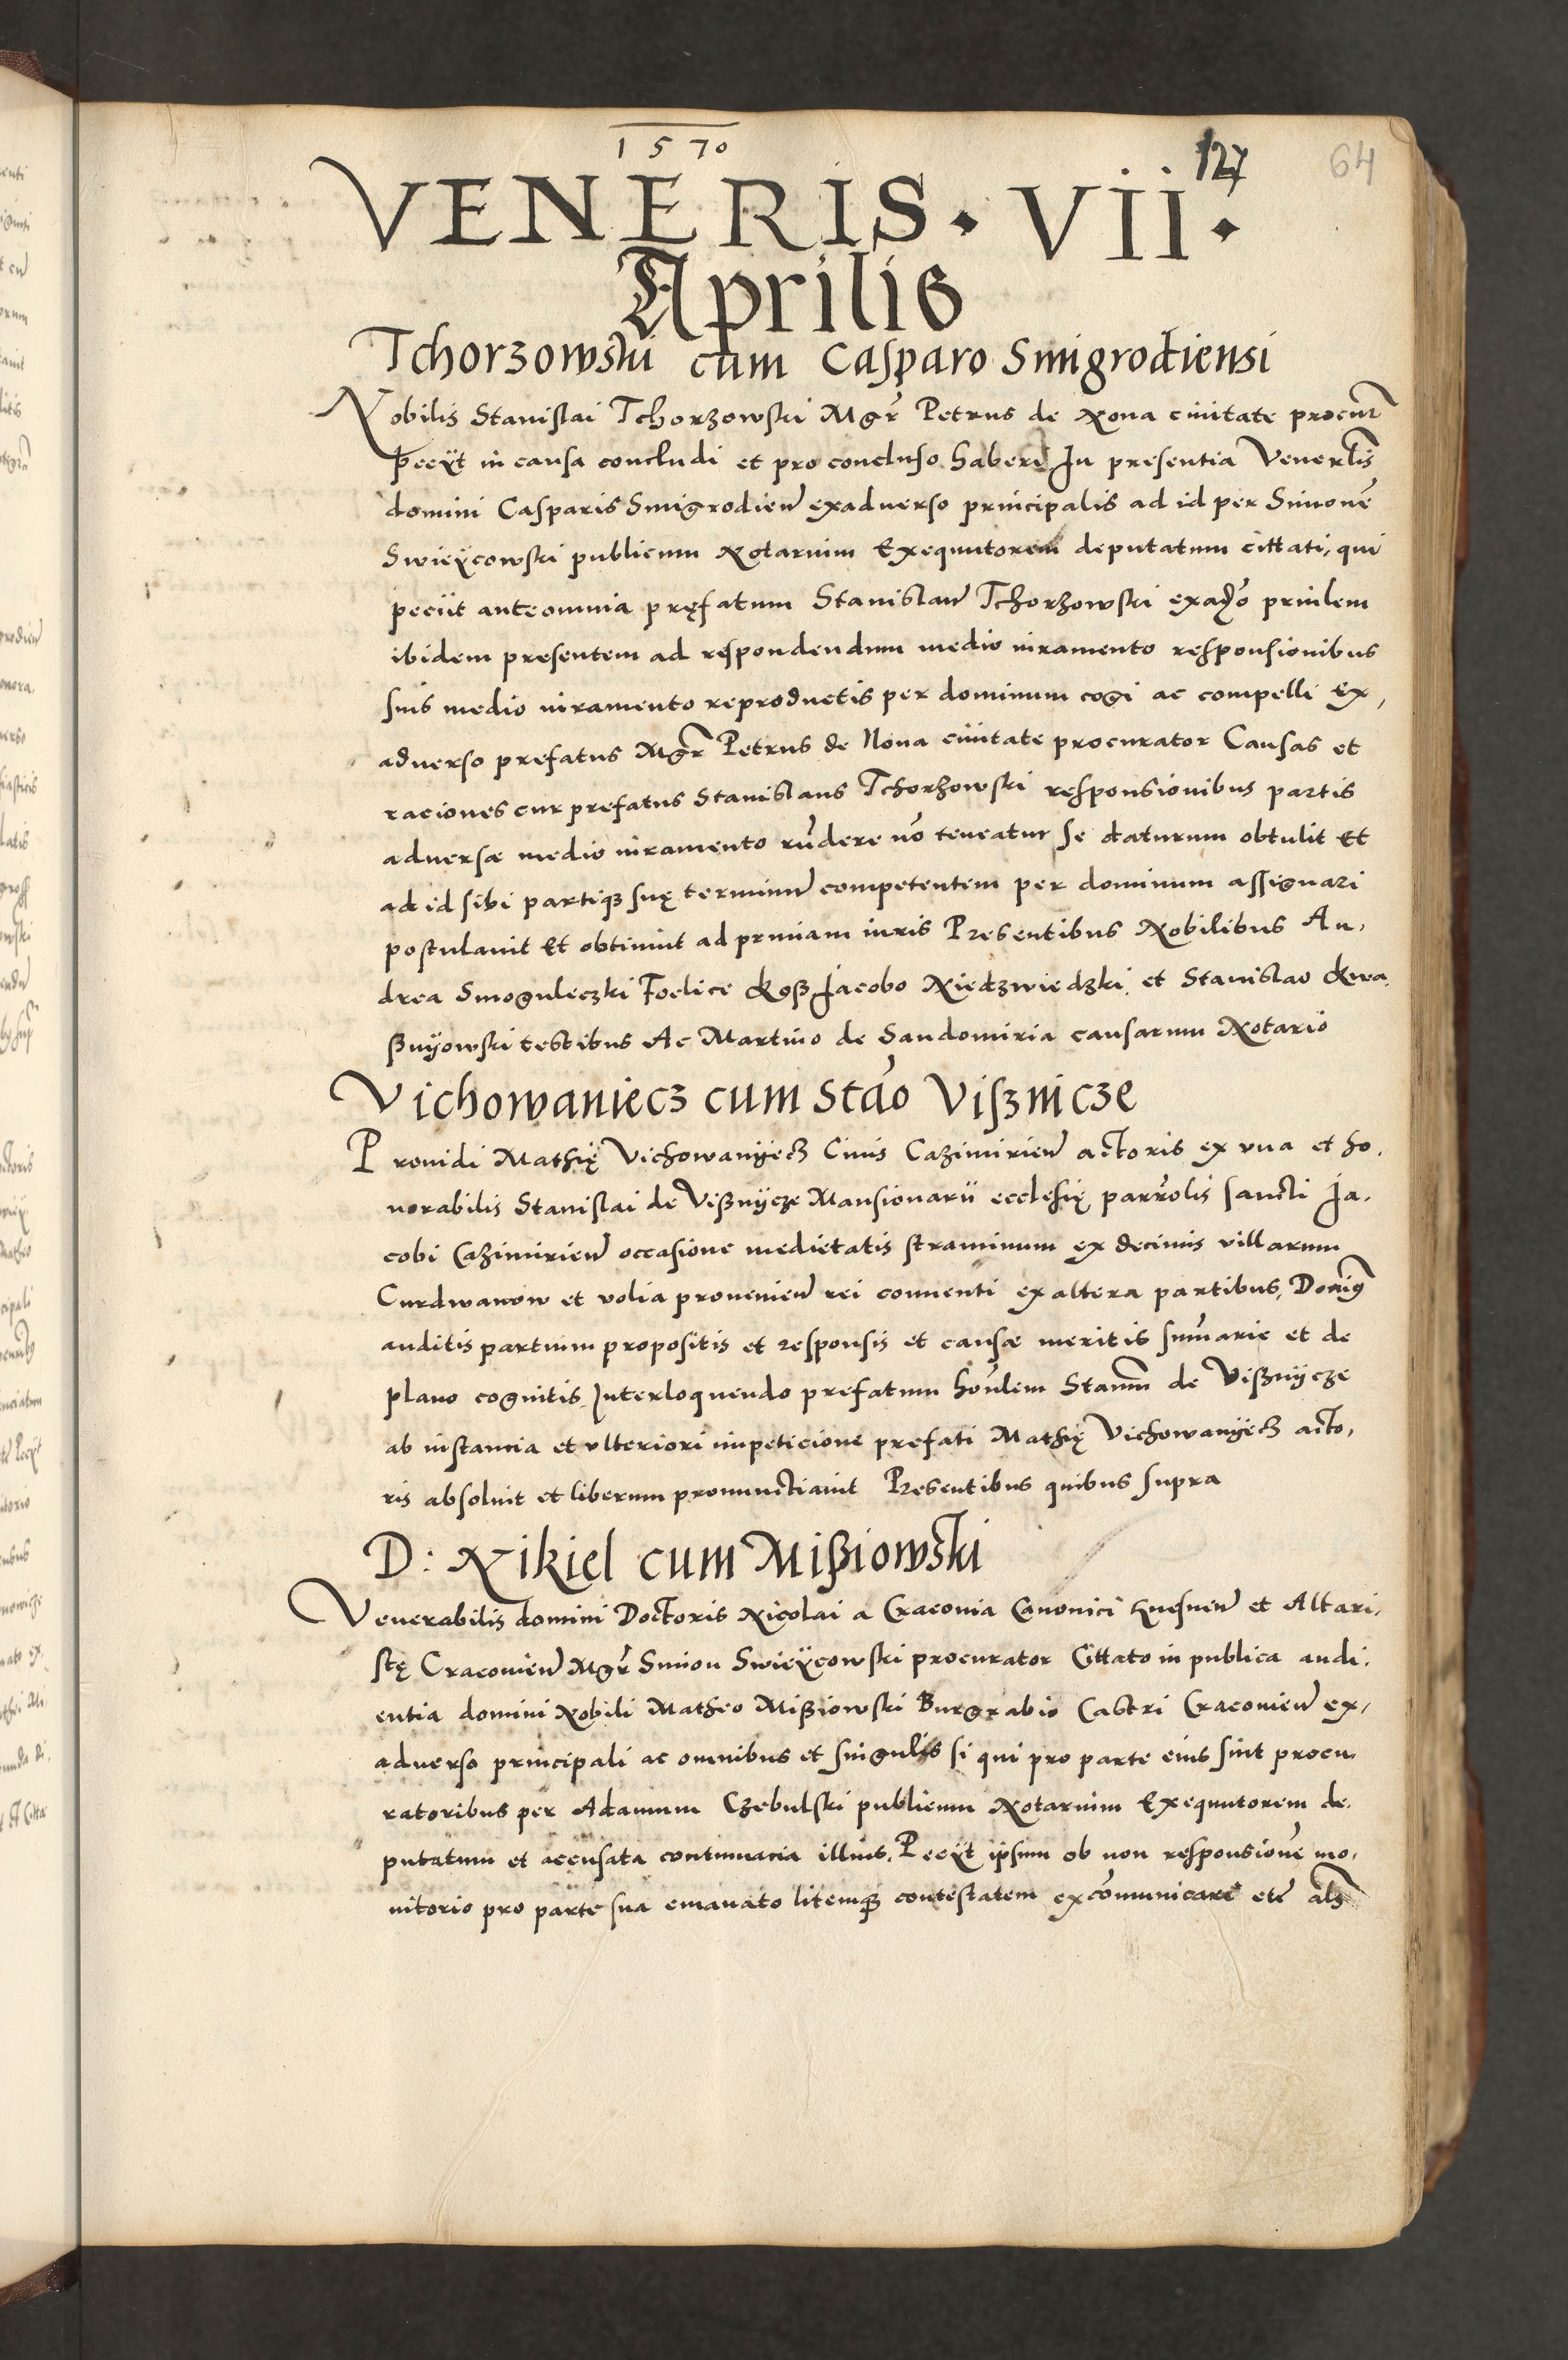 1570
127 64
VENERIS · VII ·
Aprilis
Tchorzowski cum Casparo Smigrodiensi
Nobilis Stanislai Tchorzowski Mgr̃ Petrus de Nova civitate procur̃
pecÿt in causa concludi et pro concluso haberi In presentia Venerłis
domini Casparis Smigrodieñ exadverso principalis ad id per Simonẽ
Swieÿcowski publicum Notarium Exequutorem deputatum cittati, qui
peciit anteomnia pręfatum Stanislaũ Tchorzowski exadṽo prinlem
ibidem presentem ad respondendum medio iuramento responsionibus
suis medio iuramento reproductis per dominum cogi ac compelli Ex,
adverso prefatus Mgr̃ Petrus de Nova civitate procurator Causas et
raciones cur prefatus Stanislaus Tchorzowski responsionibus partis
adversæ medio iuramento rñdere nõ teneatur se daturum obtulit Et
ad id sibi partiqꝫ suę terminũ competentem per dominum assignari
postulavit Et obtinuit ad primam iuris Presentibus Nobilibus An,
drea Smoguleczki Foelice Koß Jacobo Niedzwiedzki et Stanislao Kwa,
ßnÿowski testibus Ac Martino de Sandomiria causarum Notario
Vichowaniecz cum Stão Viſznicze
Providi Mathię Vichowanÿecz Civis Cazimirieñ actoris ex una et ho,
norabilis Stanislai de Vißnÿcze Mansionarii ecclesię parr̃olis sancti Ja,
cobi Cazimirieñ occasione medietatis straminum ex decimis villarum
Curdwanow et volia provenieñ rei conventi ex altera partibus, Domiꝯ
auditis partium propositis et responsis et causæ meritis sum̃arie et de
plano cognitis Interloquendo prefatum hoñlem Stanm̃ de Vißnÿcze
ab instancia et ulteriori impeticione prefati Mathię Vichowanÿecz acto,
ris absolvit et liberum pronunctiavit Presentibus quibus supra
D: Nikiel cum Mißiowski
Venerabilis domini Doctoris Nicolai a Cracovia Canonici Gnesneñ et Altari,
stę Cracovieñ Mgr̃ Simon Swieÿcowski procurator Cittato in publica audi,
entia domini Nobili Matheo Mißiowski Burgrabio Castri Cracovieñ ex,
adverso principali ac omnibus et singulis si qui pro parte eius sint procu,
ratoribus per Adamum Czebulski publicum Notarium Exequutorem de,
putatum et accusata contumacia illius, Pecÿt ipsum ob non responsionẽ mo,
nitorio pro parte sua emanato litemqꝫ contestatem excõmunicari etc̃ als̃